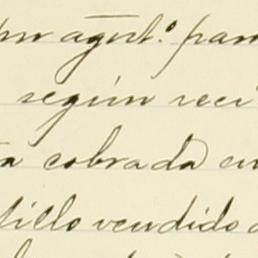 agost.º para
según reci
a cobrada en
tillo vendido a